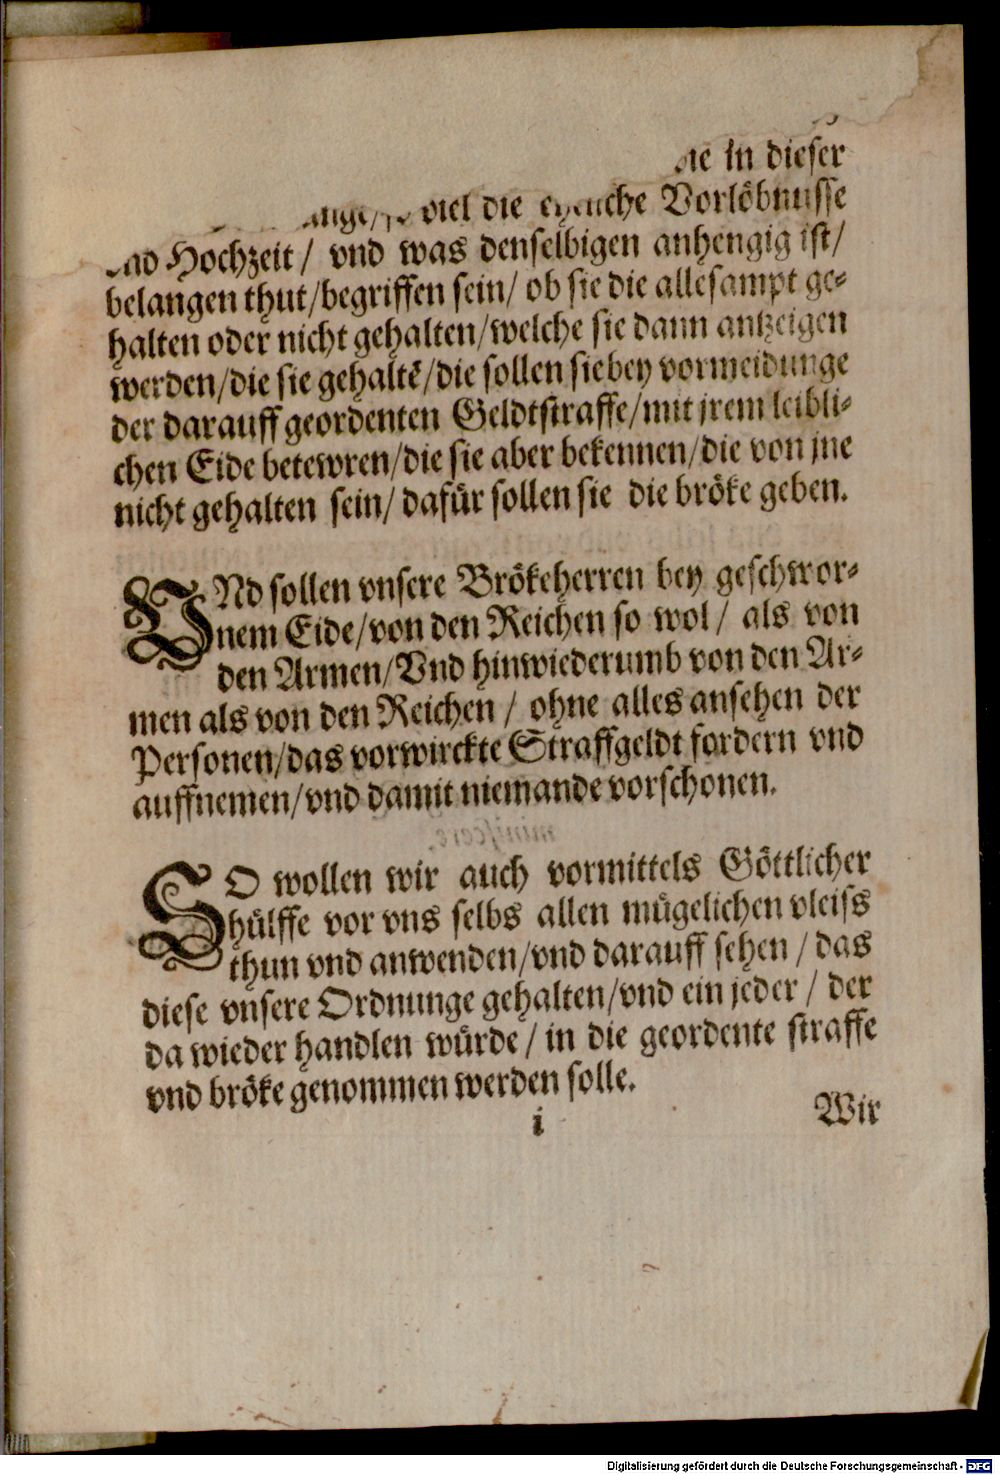 in dieser
viel die Vorlöbnusse
Hochzeit / vnd was denselbigen anhengig ist/
belangen thut/begriffen sein/ ob sie die allesampt ge-
halten oder nicht gehalten/welche sie dann antzeigen
werden/die sie gehaltē/die sollen sie bey vormeidunge
der darauff geordenten Geldtstraffe/mit jrem leibli-
chen Eide betewren/die sie aber bekennen/die von jne
nicht gehalten sein/ dafür sollen sie die bröke geben.
VNd sollen vnsere Brökeherren bey geschwor-
nem Eide/von den Reichen so wol / als von
den Armen/Vnd hinwiederumb von den Ar-
men als von den Reichen / ohne alles ansehen der
Personen/das vorwirckte Straffgeldt fordern vnd
auffnemen/vnd damit niemande vorschonen.
SO wollen wir auch vormittels Göttlicher
hülffe vor vns selbs allen mügelichen vleiss
thun vnd anwenden/vnd darauff sehen / das
diese vnsere Ordnunge gehalten/vnd ein jeder / der
da wieder handlen würde / in die geordente straffe
vnd bröke genommen werden solle.
i Wir
Digitalisierung gefördert durch die Deutsche Forschungsgemeinschaft - DFG